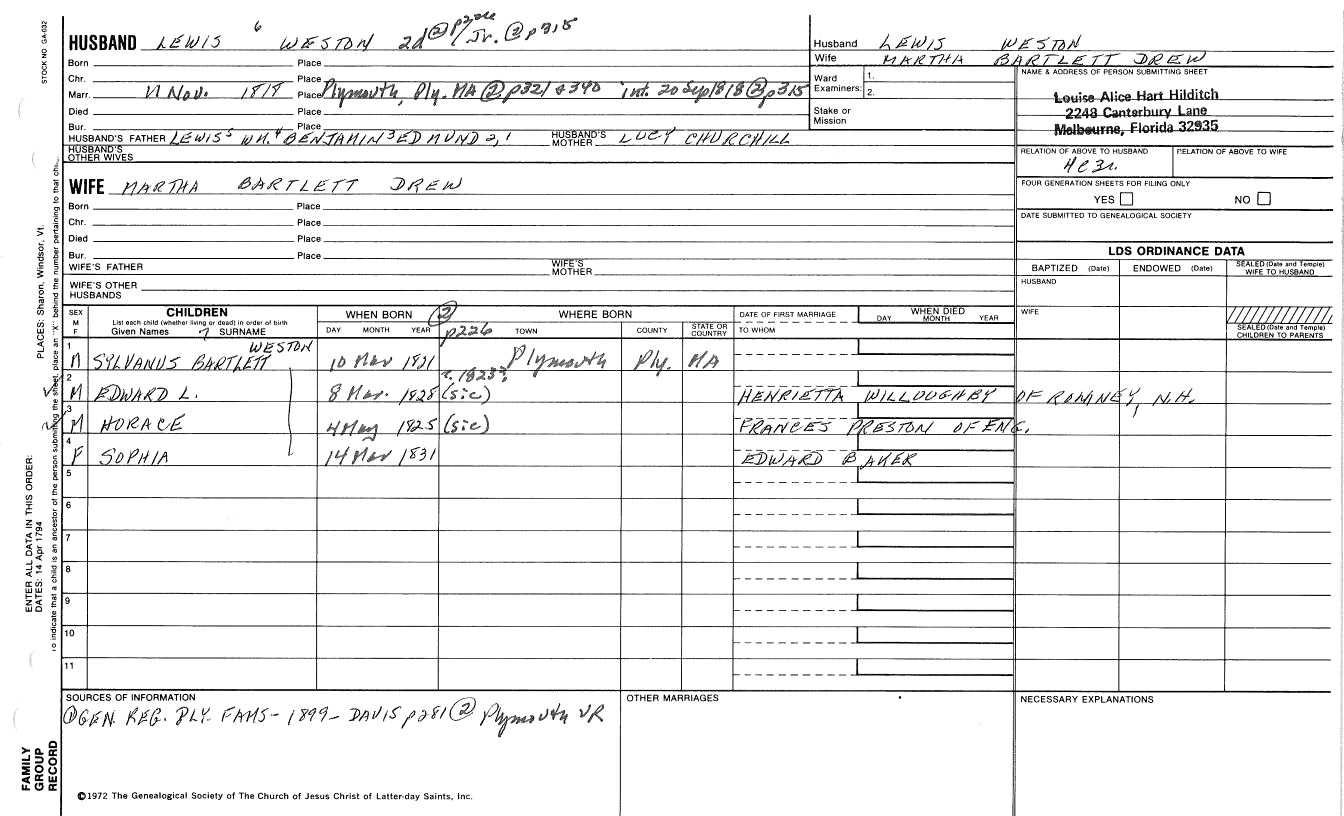 STOCK NO. GA-032
HUSBAND LEWIS 6 WESTON 2d Jr. @ p315
Born Place
Chr. Place
Marr. Nov. 1818 Place Plymouth, Ply. MA ② p321 & 390 int. 20 Sep 1818 ② p315
Died Place
Bur. Place
HUSBAND'S FATHER LEWIS 5 WM. 4 BENJAMIN 3 EDMUND 2, 1 HUSBAND'S MOTHER LUCY CHURCHILL
HUSBAND'S OTHER WIVES
WIFE MARTHA BARTLETT DREW
Born Place
Chr. Place
Died Place
Bur. Place
WIFE'S FATHER WIFE'S MOTHER
WIFE'S OTHER HUSBANDS
Husband LEWIS WESTON
Wife MARTHA BARTLETT DREW
Ward Examiners: 1.
2.
Stake or Mission
NAME & ADDRESS OF PERSON SUBMITTING SHEET
Louise Alice Hart Hilditch
2248 Canterbury Lane
Melbourne, Florida 32935
RELATION OF ABOVE TO HUSBAND RELATION OF ABOVE TO WIFE
FOUR GENERATION SHEETS FOR FILING ONLY
YES NO
DATE SUBMITTED TO GENEALOGICAL SOCIETY
LDS ORDINANCE DATA
BAPTIZED (Date) ENDOWED (Date) SEALED (Date and Temple) WIFE TO HUSBAND
HUSBAND
WIFE
SEALED (Date and Temple) CHILDREN TO PARENTS
SEX M F
CHILDREN
List each child (whether living or dead) in order of birth
Given Names 7 SURNAME
WHEN BORN ②
DAY MONTH YEAR p226
WHERE BORN
TOWN COUNTY STATE OR COUNTRY
DATE OF FIRST MARRIAGE
TO WHOM
WHEN DIED
DAY MONTH YEAR
WESTON
1 M SYLVANUS BARTLETT 10 Mar 1821 Plymouth Ply. MA
2 M EDWARD L. 8 Mar. 1828 (sic) r. 1823? HENRIETTA WILLOUGHBY OF ROMNEY, N.H.
3 M HORACE 4 May 1825 (sic) FRANCES PRESTON OF ENG.
4 F SOPHIA 14 Mar 1831 EDWARD BAKER
5
6
7
8
9
10
11
SOURCES OF INFORMATION
① GEN. REG. PLY. FAMS - 1899 - DAVIS p281 ② Plymouth VR
OTHER MARRIAGES
NECESSARY EXPLANATIONS
©1972 The Genealogical Society of The Church of Jesus Christ of Latter-day Saints, Inc.
FAMILY GROUP RECORD
ENTER ALL DATA IN THIS ORDER:
DATES: 14 Apr 1794
PLACES: Sharon, Windsor, Vt.
to indicate that a child is an ancestor of the person submitting the sheet, place an "X" behind the number pertaining to that